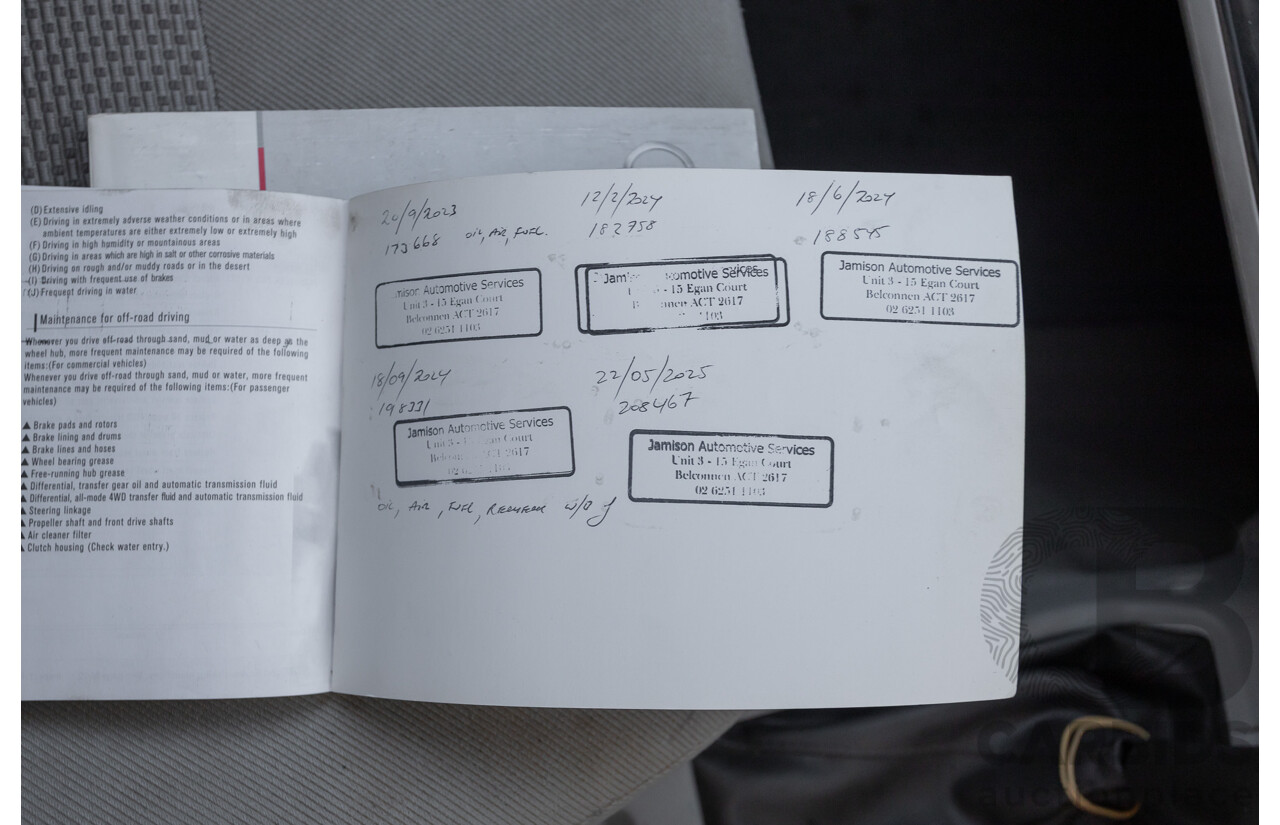 (D) Extensive idling
(E) Driving in extremely adverse weather conditions or in areas where
ambient temperatures are either extremely low or extremely high
(F) Driving in high humidity or mountainous areas
(G) Driving in areas which are high in salt or other corrosive materials
(H) Driving on rough and/or muddy roads or in the desert
(I) Driving with frequent use of brakes
(J) Frequent driving in water
Maintenance for off-road driving
Whenever you drive off-road through sand, mud or water as deep as the
wheel hub, more frequent maintenance may be required of the following
items:(For commercial vehicles)
Whenever you drive off-road through sand, mud or water, more frequent
maintenance may be required of the following items:(For passenger
vehicles)
▲ Brake pads and rotors
▲ Brake lining and drums
▲ Brake lines and hoses
▲ Wheel bearing grease
▲ Free-running hub grease
▲ Differential, transfer gear oil and automatic transmission fluid
▲ Differential, all-mode 4WD transfer fluid and automatic transmission fluid
▲ Steering linkage
▲ Propeller shaft and front drive shafts
▲ Air cleaner filter
▲ Clutch housing (Check water entry.)
20/9/2023
173668 OIL, AIR, FUEL.
Jamison Automotive Services
Unit 3 - 15 Egan Court
Belconnen ACT 2617
02 6251 1103
12/2/2024
182758
Jamison Automotive Services
- 15 Egan Court
Belconnen ACT 2617
1103
18/6/2024
188545
Jamison Automotive Services
Unit 3 - 15 Egan Court
Belconnen ACT 2617
02 6251 1103
18/09/2024
198331
Jamison Automotive Services
Unit 3 - 15 Egan Court
Belconnen ACT 2617
02 6251 1103
OIL, AIR, FUEL,
22/05/2025
208467
Jamison Automotive Services
Unit 3 - 15 Egan Court
Belconnen ACT 2617
02 6251 1103